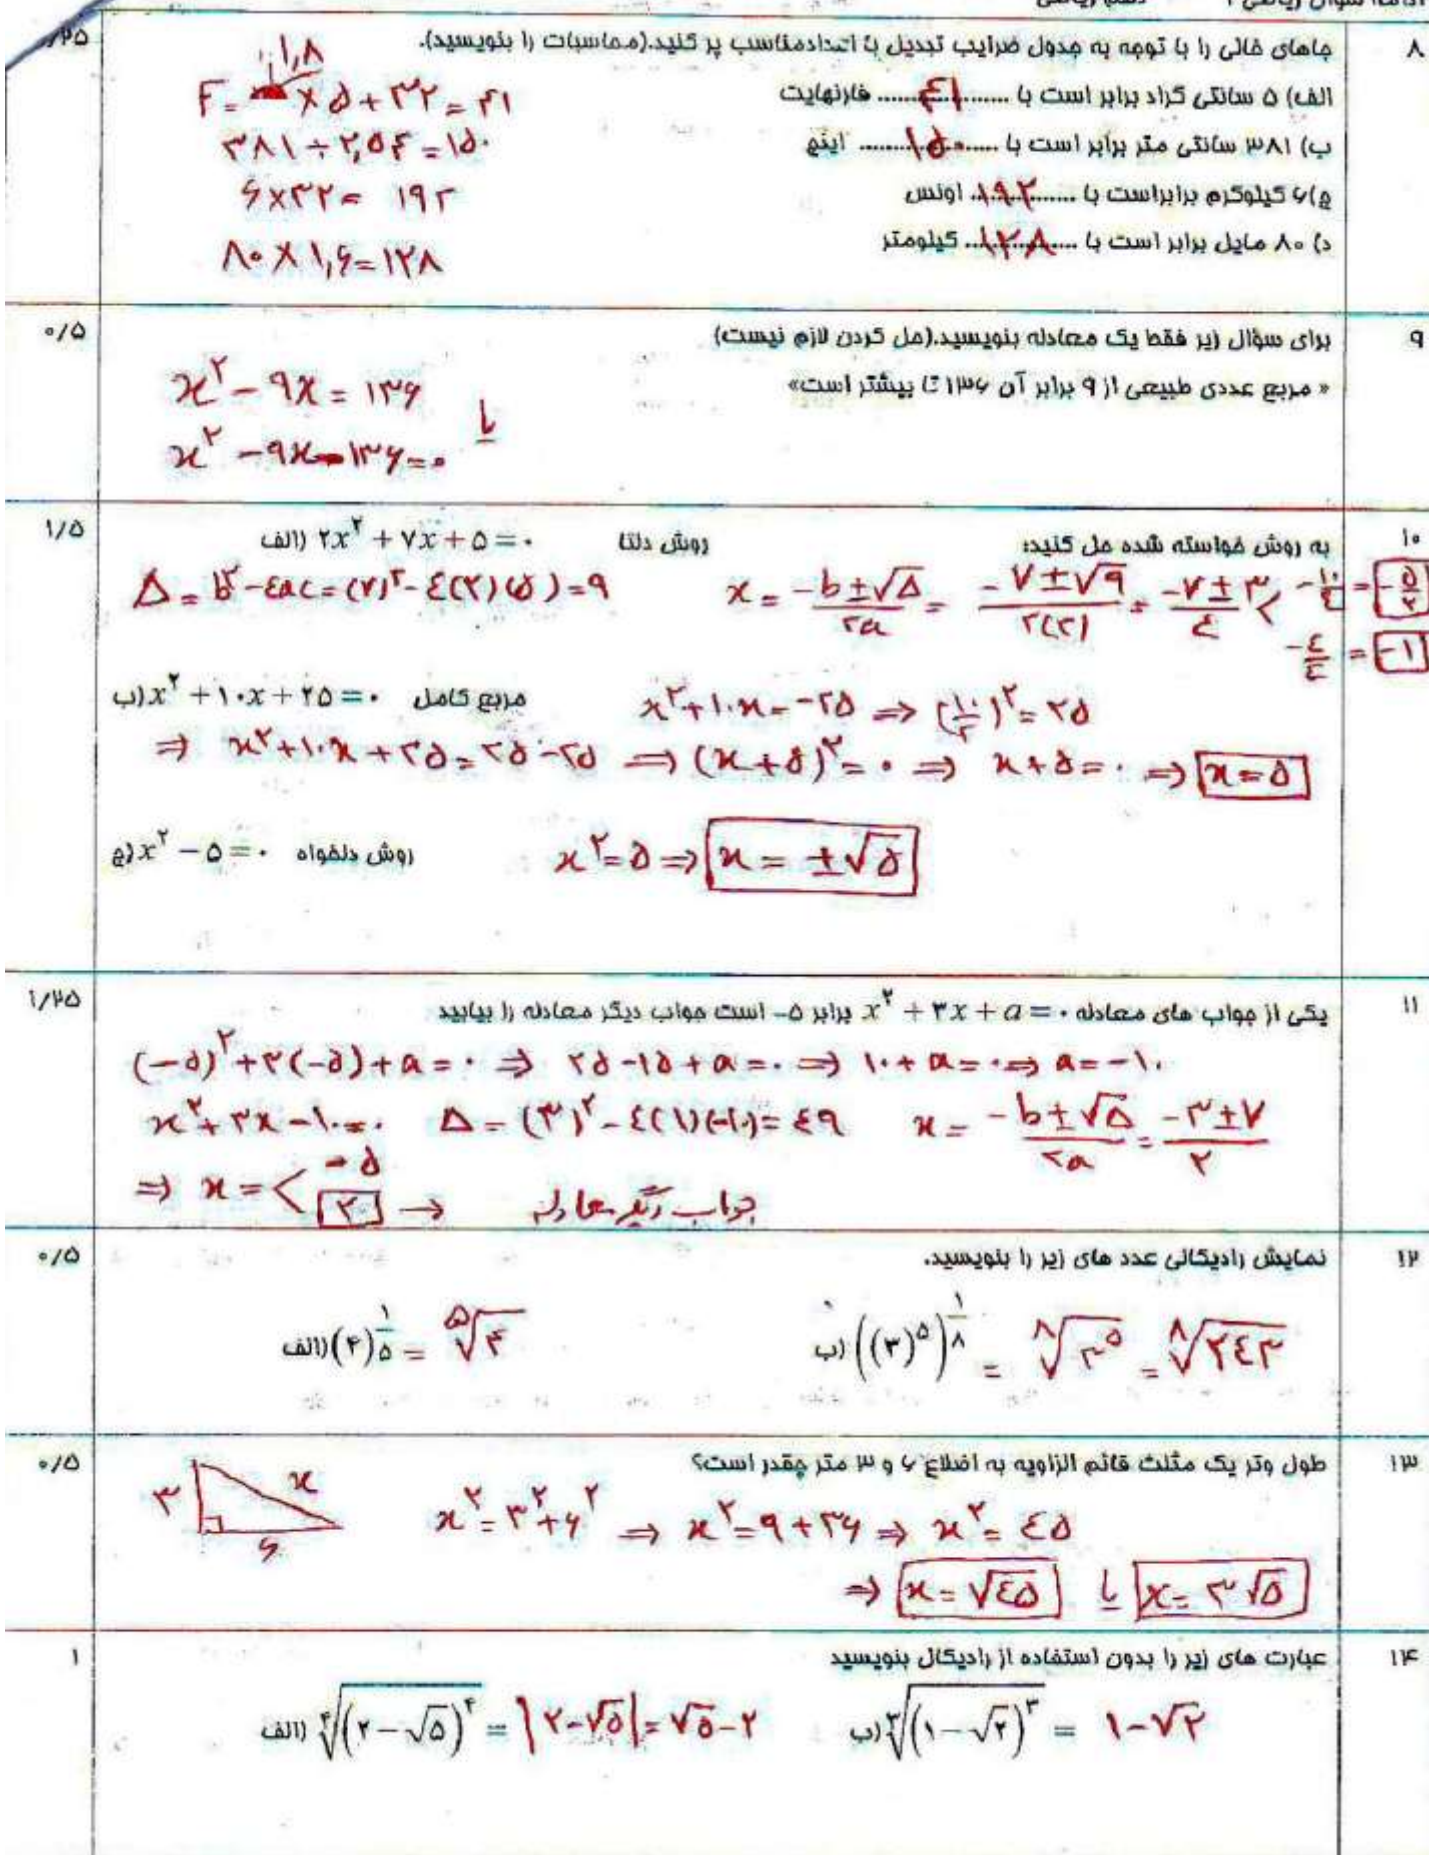 ۸ جاهای خالی را با توجه به جدول ضرایب تبدیل با اعداد مناسب پر کنید.(محاسبات را بنویسید).
الف) ۵ سانتی گراد برابر است با ....۴۱.... فارنهایت F = ۱,۸ × ۵ + ۳۲ = ۴۱
ب) ۳۸۱ سانتی متر برابر است با ....۱۵۰.... اینچ ۳۸۱ ÷ ۲,۵۴ = ۱۵۰
ج) ۶ کیلوگرم برابراست با ....۱۹۲.... اونس ۶ × ۳۲ = ۱۹۲
د) ۸۰ مایل برابر است با ....۱۲۸.... کیلومتر ۸۰ × ۱,۶ = ۱۲۸
۹ برای سؤال زیر فقط یک معادله بنویسید.(حل کردن لازم نیست) ۰/۵
« مربع عددی طبیعی از ۹ برابر آن ۱۳۶ تا بیشتر است»
x² - ۹x = ۱۳۶ یا
x² - ۹x - ۱۳۶ = ۰
۱۰ به روش خواسته شده حل کنید: ۱/۵
الف) ۲x² + ۷x + ۵ = ۰ روش دلتا
Δ = b² - ٤ac = (۷)² - ٤(۲)(۵) = ۹ x = (-b ± √Δ)/۲a = (-۷ ± √۹)/۲(۲) = (-۷ ± ۳)/٤ < -۱۰/٤ = -۵/۲
-٤/٤ = -۱
ب) x² + ۱۰x + ۲۵ = ۰ مربع کامل x² + ۱۰x = -۲۵ ⇒ (۱۰/۲)² = ۲۵
⇒ x² + ۱۰x + ۲۵ = ۲۵ - ۲۵ ⇒ (x + ۵)² = ۰ ⇒ x + ۵ = ۰ ⇒ x = ۵
ج) x² - ۵ = ۰ روش دلخواه x² = ۵ ⇒ x = ±√۵
۱۱ یکی از جواب های معادله x² + ۳x + a = ۰ برابر ۵- است جواب دیگر معادله را بیابید ۱/۲۵
(-۵)² + ۳(-۵) + a = ۰ ⇒ ۲۵ - ۱۵ + a = ۰ ⇒ ۱۰ + a = ۰ ⇒ a = -۱۰
x² + ۳x - ۱۰ = ۰ Δ = (۳)² - ٤(۱)(-۱۰) = ٤۹ x = (-b ± √Δ)/۲a = (-۳ ± ۷)/۲
⇒ x = < -۵
۲ → جواب دیگر معادله
۱۲ نمایش رادیکالی عدد های زیر را بنویسید. ۰/۵
الف) (۴)^(۱/۵) = ⁵√۴ ب) ((۳)^۵)^(۱/۸) = ⁸√۳⁵ = ⁸√۲٤۳
۱۳ طول وتر یک مثلث قائم الزاویه به اضلاع ۶ و ۳ متر چقدر است؟ ۰/۵
۳ x ۶ x² = ۳² + ۶² ⇒ x² = ۹ + ۳۶ ⇒ x² = ٤۵
⇒ x = √٤۵ یا x = ۳√۵
۱۴ عبارت های زیر را بدون استفاده از رادیکال بنویسید ۱
الف) ⁴√(۲ - √۵)⁴ = |۲ - √۵| = √۵ - ۲ ب) ³√(۱ - √۲)³ = ۱ - √۲